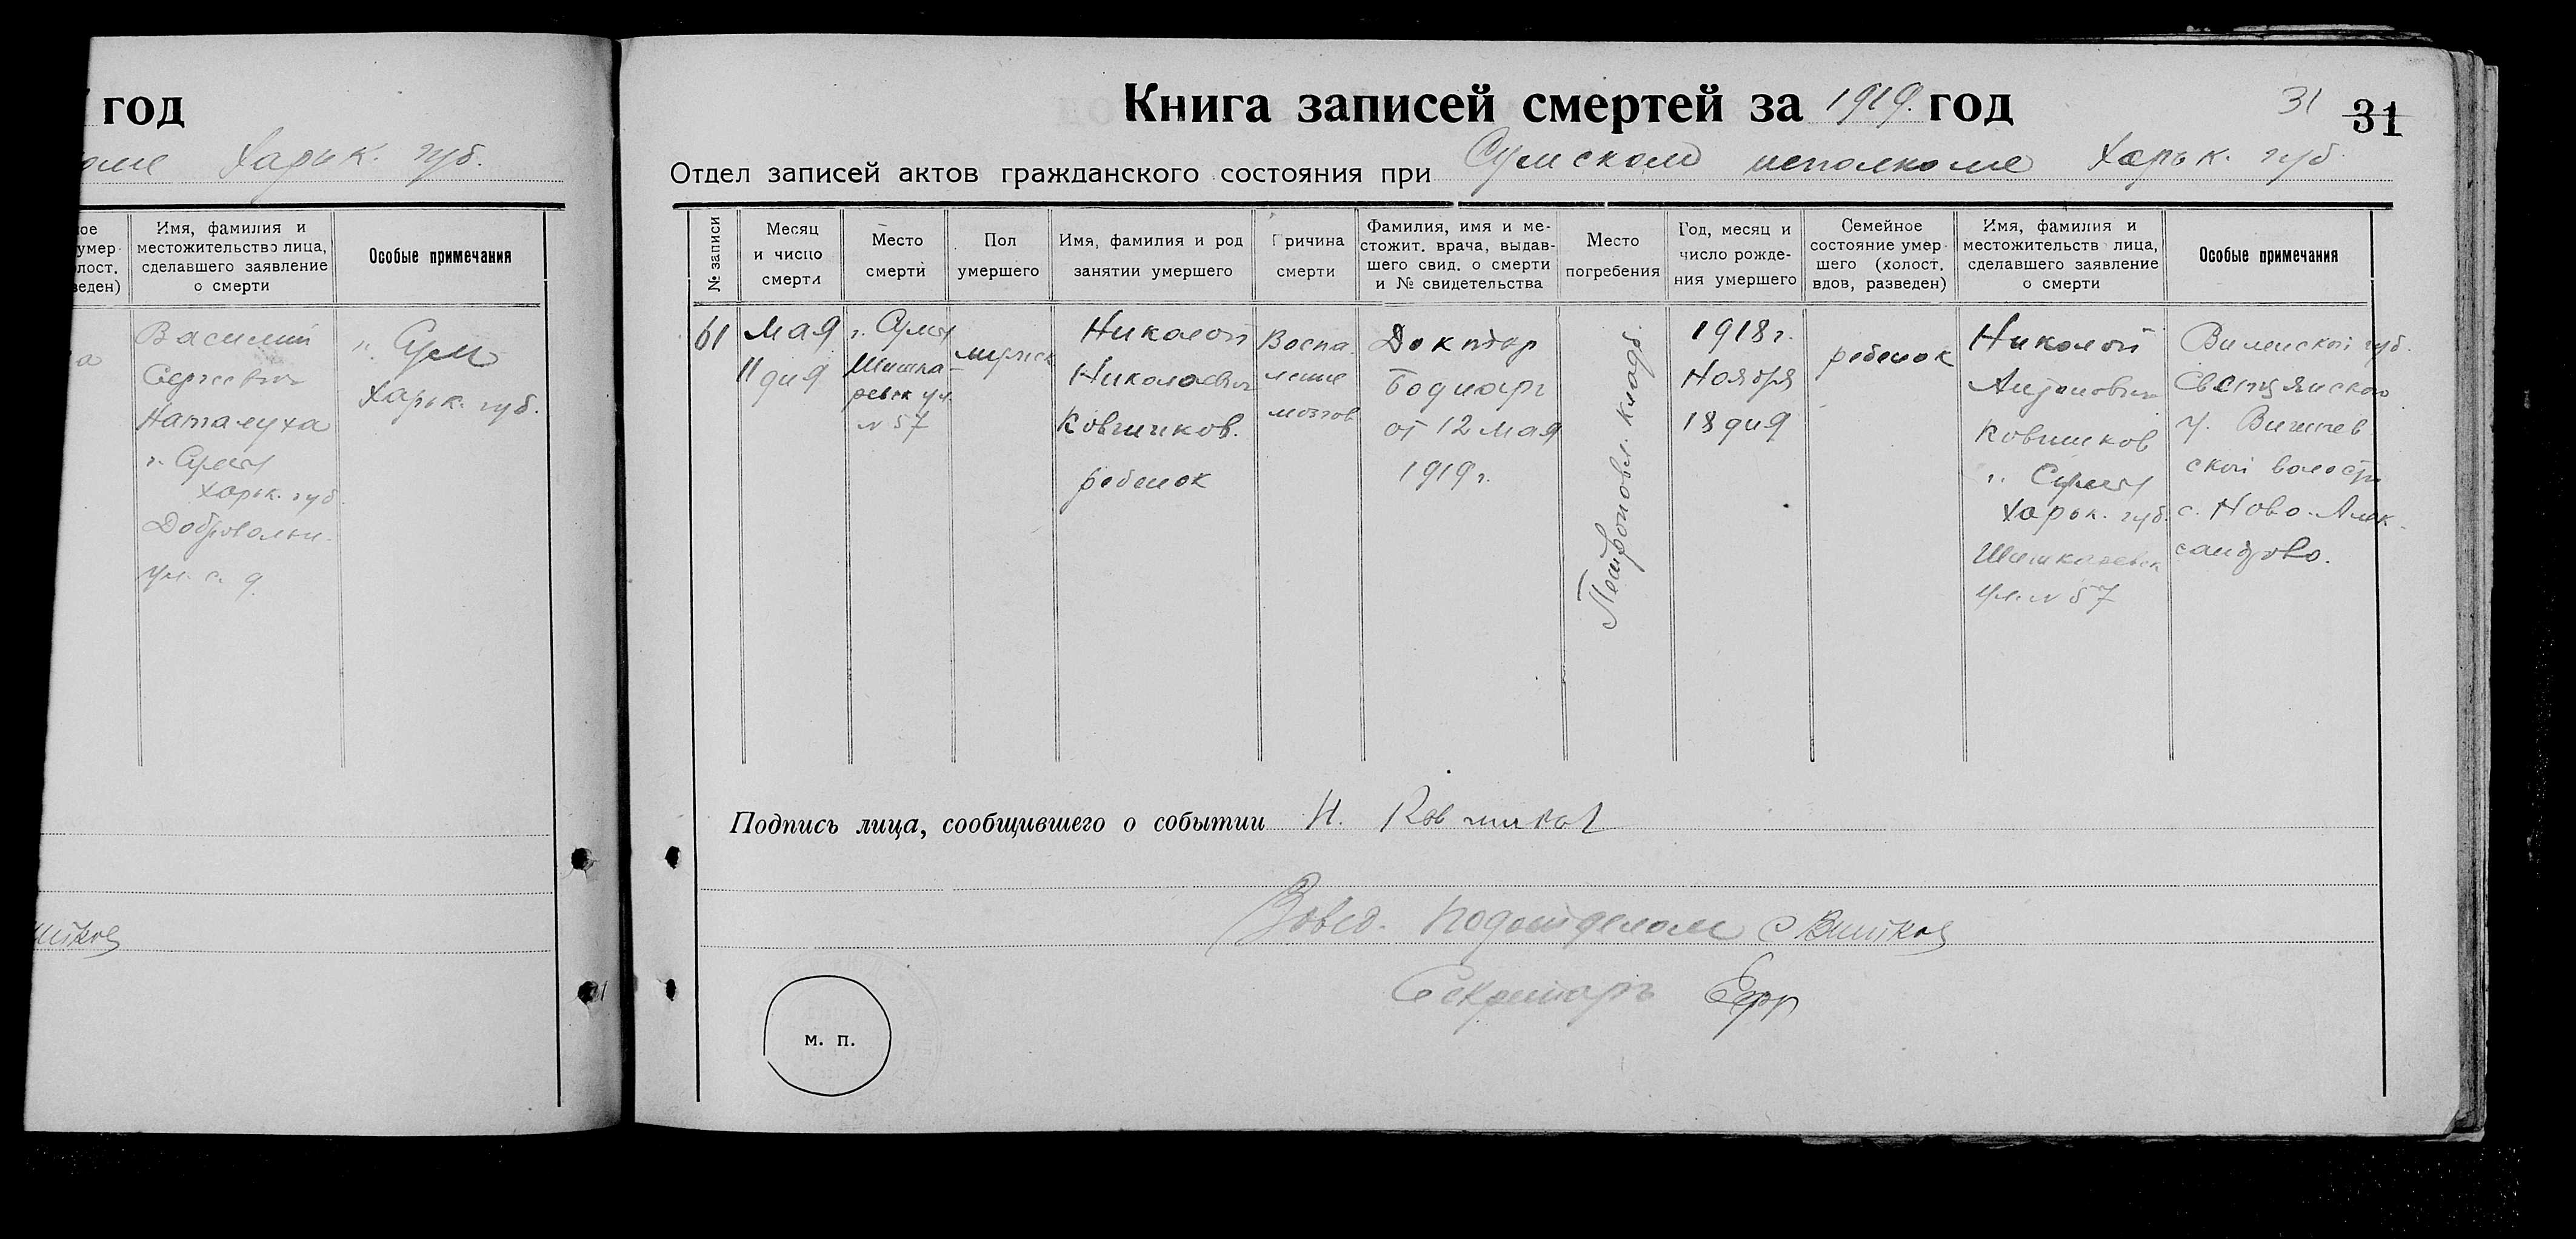 год
Харьк. губ.
Имя, фамилия и
местожительство лица,
сделавшего заявление
о смерти
Особые примечания
Василий
Сергиевич
Наталуха
г. Сумы
Харьк. губ.
Добровольн.
ул. с. д.
г. Сумы
Харьк. губ.
Книга записей смертей за 1919. год
31
31
Отдел записей актов гражданского состояния при Сумском исполкоме Харьк. губ.
№ записи
Месяц
и число
смерти
Место
смерти
Пол
умершего
Имя, фамилия и род
занятии умершего
Причина
смерти
Фамилия, имя и ме-
стожит. врача, выдав-
шего свид. о смерти
и № свидетельства
Место
погребения
Год, месяц и
число рожде-
ния умершего
Семейное
состояние умер-
шего (холост.
вдов, разведен)
Имя, фамилия и
местожительств лица,
сделавшего заявление
о смерти
Особые примечания
61
Мая
11 дня
г. Сумы
Шишка-
ревск ул.
№ 57
мужск
Николай
Николаевич
Ковшиков.
ребенок
Воспа-
ление
мозгов
Доктор
Боднарг
от 12 мая
1919 г.
Петропавл. кладб.
1918 г.
Ноября
18 дня
ребенок
Николай
Антонович
Ковшиков
г. Сумы
Харьк. губ.
Шишкаревск
ул. № 57
Виленской губ.
Свенцянского
у. Вишнев
ской волости
с. Ново-Алек-
сандрово.
Подпись лица, сообщившего о событии Н. Ковшиков
Завед. подотделом
Секретарь
м. п.